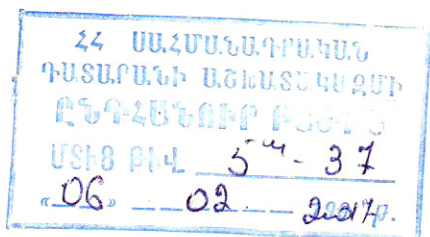 ՀՀ ՍԱՀՄԱՆԱԴՐԱԿԱՆ
ԴԱՏԱՐԱՆԻ ԱՇԽԱՏԱԿԱԶՄԻ
ԸՆԴՀԱՆՈՒՐ ԲԱԺԻՆ
ՄՏԻՑ ԹԻՎ 5 - 37
«06» 02 2017թ.